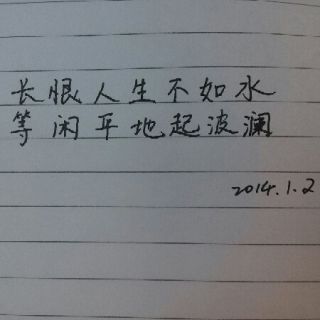 长恨人生不如水
等闲平地起波澜
2014.1.2